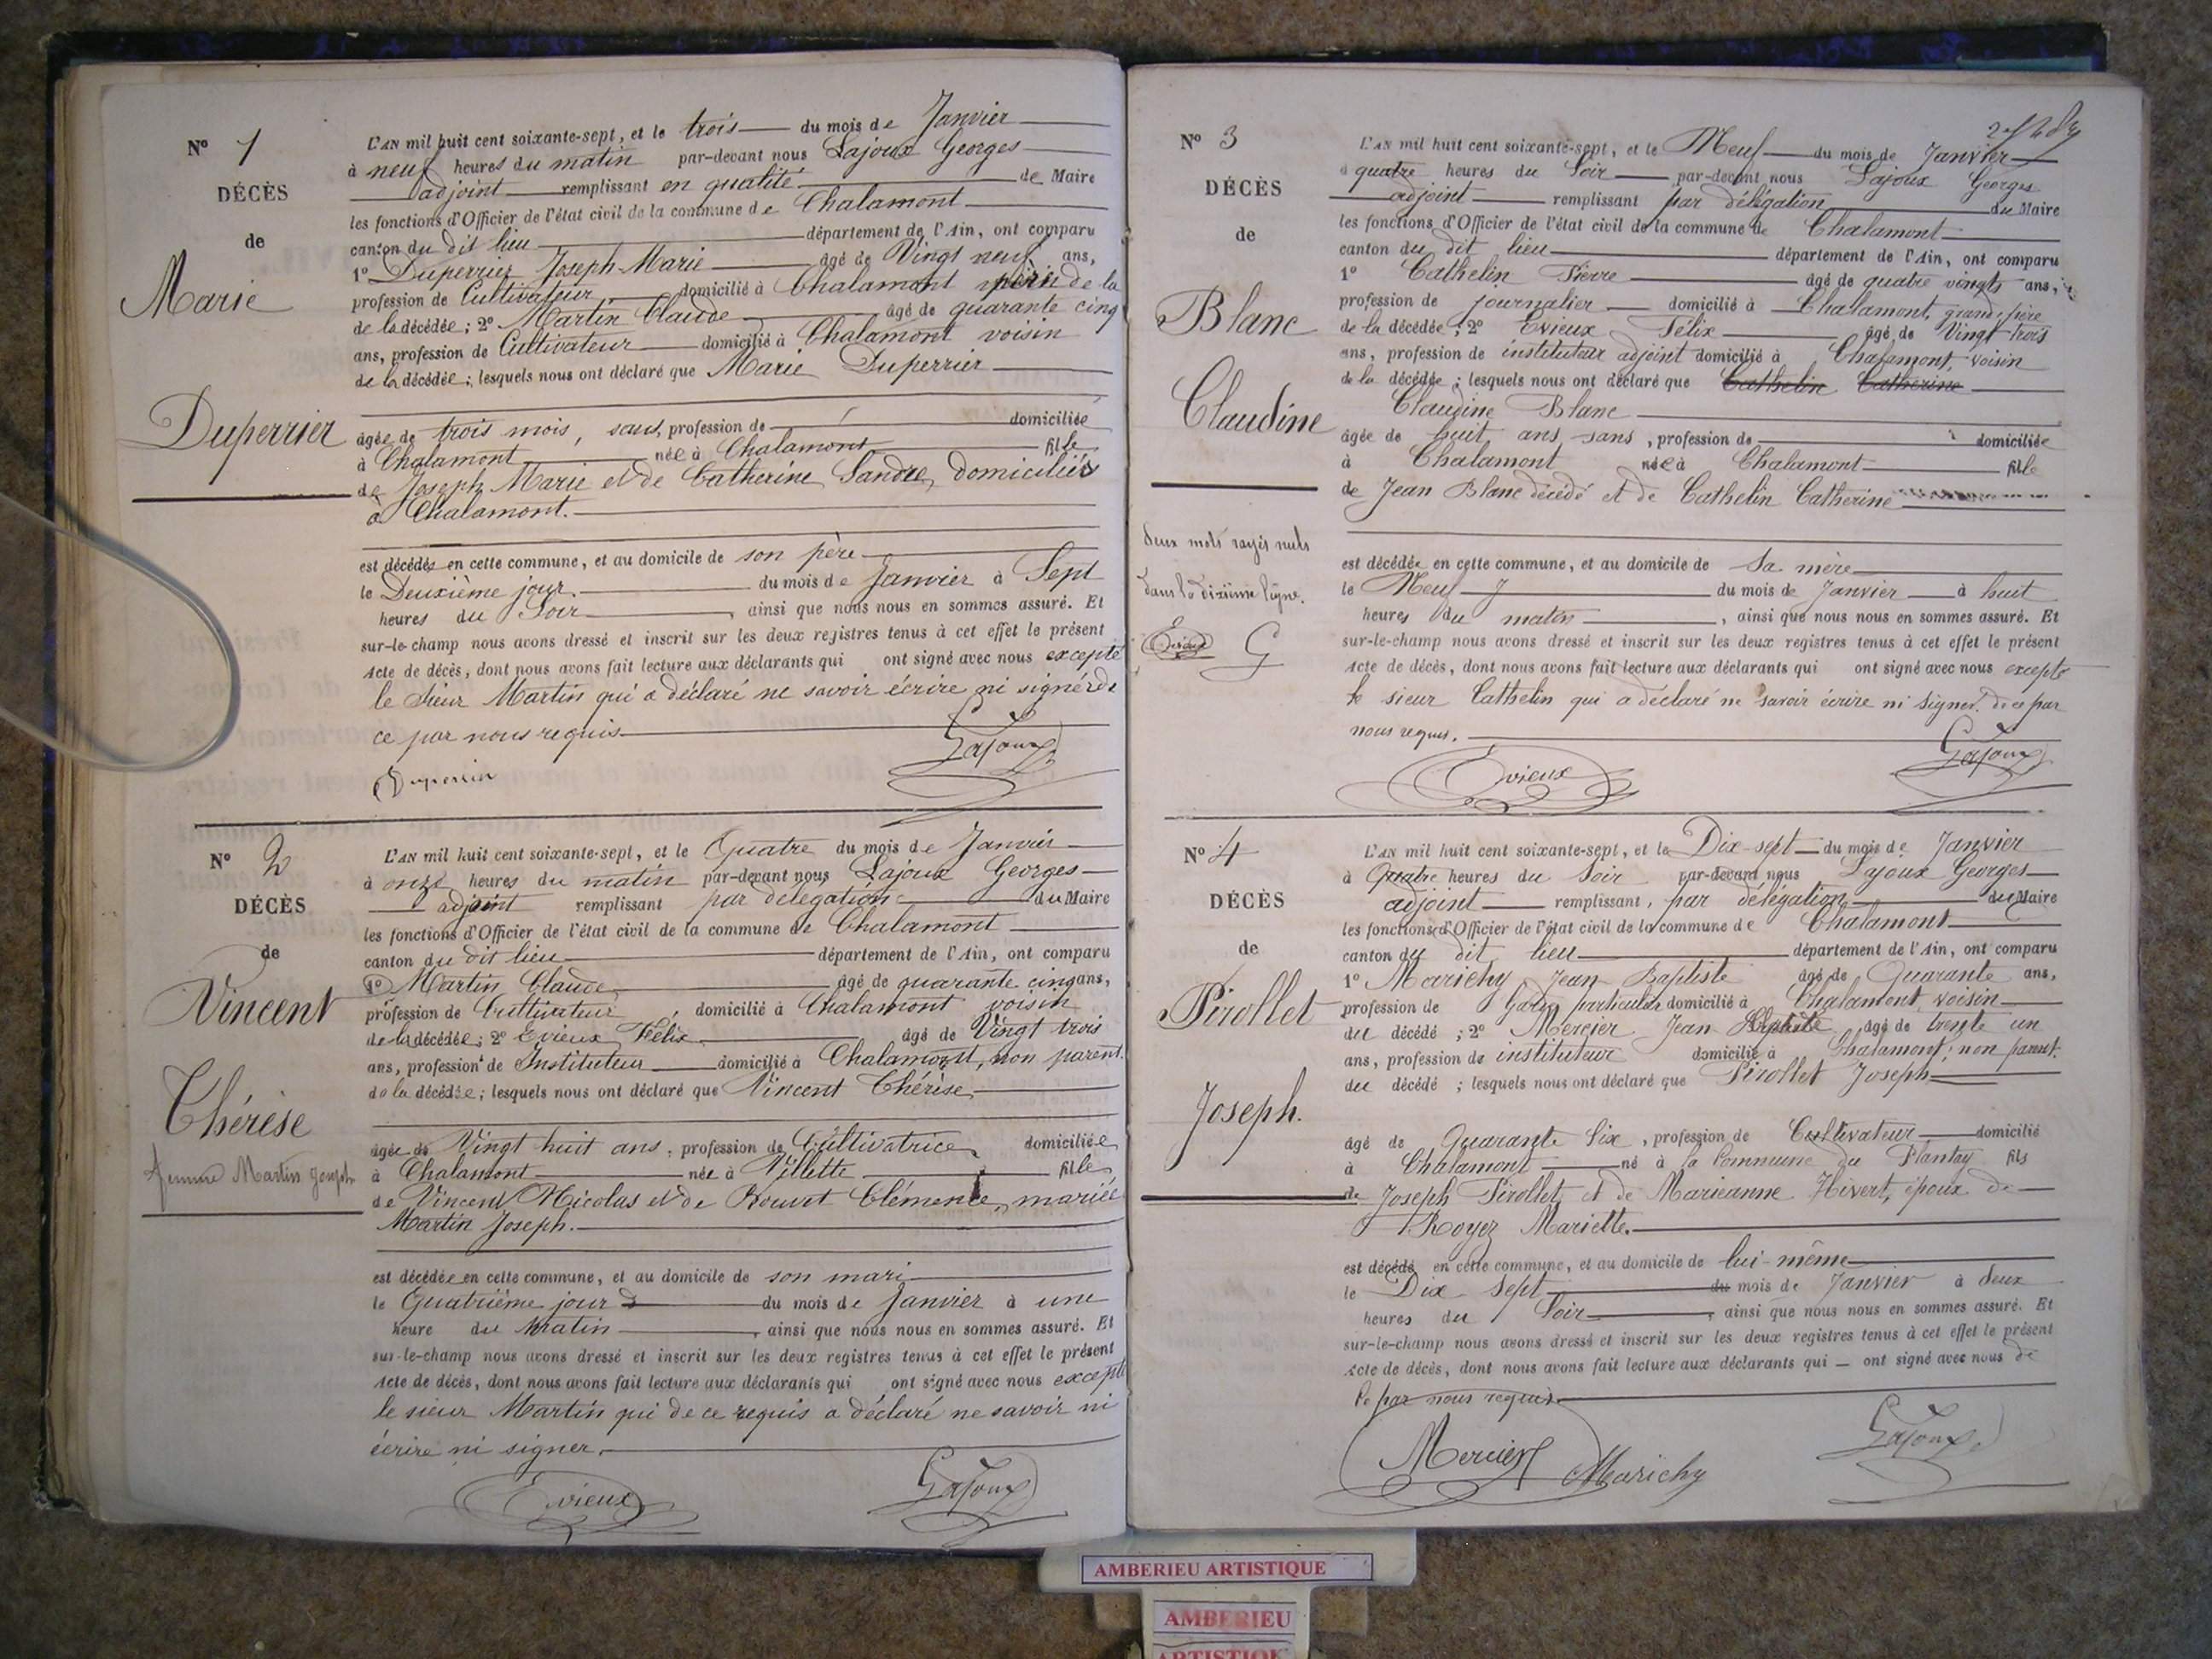 Nº 1
DÉCÈS
de
Marie
Duperrier
L'AN mil huit cent soixante-sept, et le trois du mois de Janvier
à neuf heures du matin par-devant nous Lajoux Georges
adjoint remplissant en qualité de Maire
les fonctions d'Officier de l'état civil de la commune de Chalamont
canton du dit lieu département de l'Ain, ont comparu
1º Duperrier Joseph Marie âgé de Vingt neuf ans,
profession de Cultivateur domicilié à Chalamont père de la
de la décédée; 2º Martin Claude âgé de quarante cinq
ans, profession de Cultivateur domicilié à Chalamont voisin
de la décédée; lesquels nous ont déclaré que Marie Duperrier
âgée de trois mois, sans profession de domiciliée
à Chalamont née à Chalamont fille
de Joseph Marie et de Catherine Sandre, domiciliés
à Chalamont.
est décédée en cette commune, et au domicile de son père
le Deuxième jour du mois de Janvier à Sept
heures du Soir, ainsi que nous nous en sommes assuré. Et
sur-le-champ nous avons dressé et inscrit sur les deux registres tenus à cet effet le présent
Acte de décès, dont nous avons fait lecture aux déclarants qui ont signé avec nous excepté
le sieur Martin qui a déclaré ne savoir écrire ni signer de
ce par nous requis
Duperrier Lajoux
Nº 2
DÉCÈS
de
Vincent
Thérèse
femme Martin Joseph
L'AN mil huit cent soixante-sept, et le Quatre du mois de Janvier
à onze heures du matin par-devant nous Lajoux Georges
adjoint remplissant par délégation du Maire
les fonctions d'Officier de l'état civil de la commune de Chalamont
canton du dit lieu département de l'Ain, ont comparu
1º Martin Claude âgé de quarante cinq ans,
profession de Cultivateur, domicilié à Chalamont voisin
de la décédée; 2º Evieux Félix âgé de Vingt trois
ans, profession de Instituteur domicilié à Chalamont, non parent
de la décédée; lesquels nous ont déclaré que Vincent Thérèse
âgée de Vingt huit ans, profession de Cultivatrice domiciliée
à Chalamont née à Villette fille
de Vincent Nicolas et de Bouvet Clémence, mariée
Martin Joseph.
est décédée en cette commune, et au domicile de son mari
le Quatrième jour du mois de Janvier à une
heure du Matin, ainsi que nous nous en sommes assuré. Et
sur-le-champ nous avons dressé et inscrit sur les deux registres tenus à cet effet le présent
Acte de décès, dont nous avons fait lecture aux déclarants qui ont signé avec nous excepté
le sieur Martin qui de ce requis a déclaré ne savoir ni
écrire ni signer.
Evieux Lajoux
Nº 3
DÉCÈS
de
Blanc
Claudine
deux mots rayés nuls
dans la dixième ligne.
Evieux G
L'AN mil huit cent soixante-sept, et le Neuf du mois de Janvier
à quatre heures du Soir par-devant nous Lajoux Georges
adjoint remplissant par délégation du Maire
les fonctions d'Officier de l'état civil de la commune de Chalamont
canton du dit lieu département de l'Ain, ont comparu
1º Cathelin Pierre âgé de quatre vingts ans,
profession de journalier domicilié à Chalamont, grand père
de la décédée; 2º Evieux Félix âgé de Vingt trois
ans, profession de instituteur adjoint domicilié à Chalamont, voisin
de la décédée; lesquels nous ont déclaré que Cathelin Catherine
Claudine Blanc
âgée de huit ans sans, profession de domiciliée
à Chalamont née à Chalamont fille
de Jean Blanc décédé et de Cathelin Catherine
est décédée en cette commune, et au domicile de sa mère
le Neuf du mois de Janvier à huit
heures du matin, ainsi que nous nous en sommes assuré. Et
sur-le-champ nous avons dressé et inscrit sur les deux registres tenus à cet effet le présent
Acte de décès, dont nous avons fait lecture aux déclarants qui ont signé avec nous excepté
le sieur Cathelin qui a déclaré ne savoir écrire ni signer. de ce par
nous requis.
Evieux Lajoux
Nº 4
DÉCÈS
de
Pirollet
Joseph.
L'AN mil huit cent soixante-sept, et le Dix-sept du mois de Janvier
à Quatre heures du Soir par-devant nous Lajoux Georges
adjoint remplissant, par délégation du Maire
les fonctions d'Officier de l'état civil de la commune de Chalamont
canton du dit lieu département de l'Ain, ont comparu
1º Marichy Jean Baptiste âgé de Quarante ans,
profession de Garde particulier domicilié à Chalamont, voisin
du décédé; 2º Mercier Jean âgé de trente un
ans, profession de instituteur domicilié à Chalamont; non parent
du décédé; lesquels nous ont déclaré que Pirollet Joseph
âgé de Quarante Six, profession de Cultivateur domicilié
à Chalamont né à la Commune du Plantay fils
de Joseph Pirollet et de Marieanne Hivert, époux de
Royer Mariette.
est décédé en cette commune, et au domicile de lui-même
le Dix Sept du mois de Janvier à deux
heures du Soir, ainsi que nous nous en sommes assuré. Et
sur-le-champ nous avons dressé et inscrit sur les deux registres tenus à cet effet le présent
Acte de décès, dont nous avons fait lecture aux déclarants qui ont signé avec nous de
ce par nous requis.
Mercier Marichy Lajoux
AMBERIEU ARTISTIQUE
AMBERIEU
ARTISTIQUE